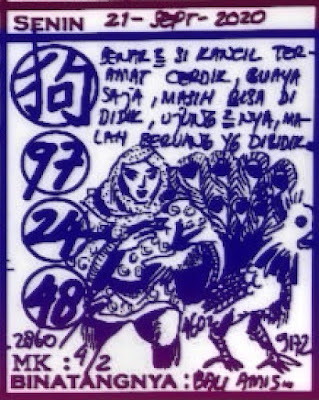 SENIN 21-SEPT-2020
狗
BENAR 2 SI KANCIL TER-
AMAT CERDIK, BUAYA
SAJA, MASIH BISA DI
DIDIK, UJUNG 2 NYA, MA-
LAH BERUANG YG DIBIDIK
97
24
48
2860
9172
MK : 4/2
BINATANGNYA : BALI AMIS